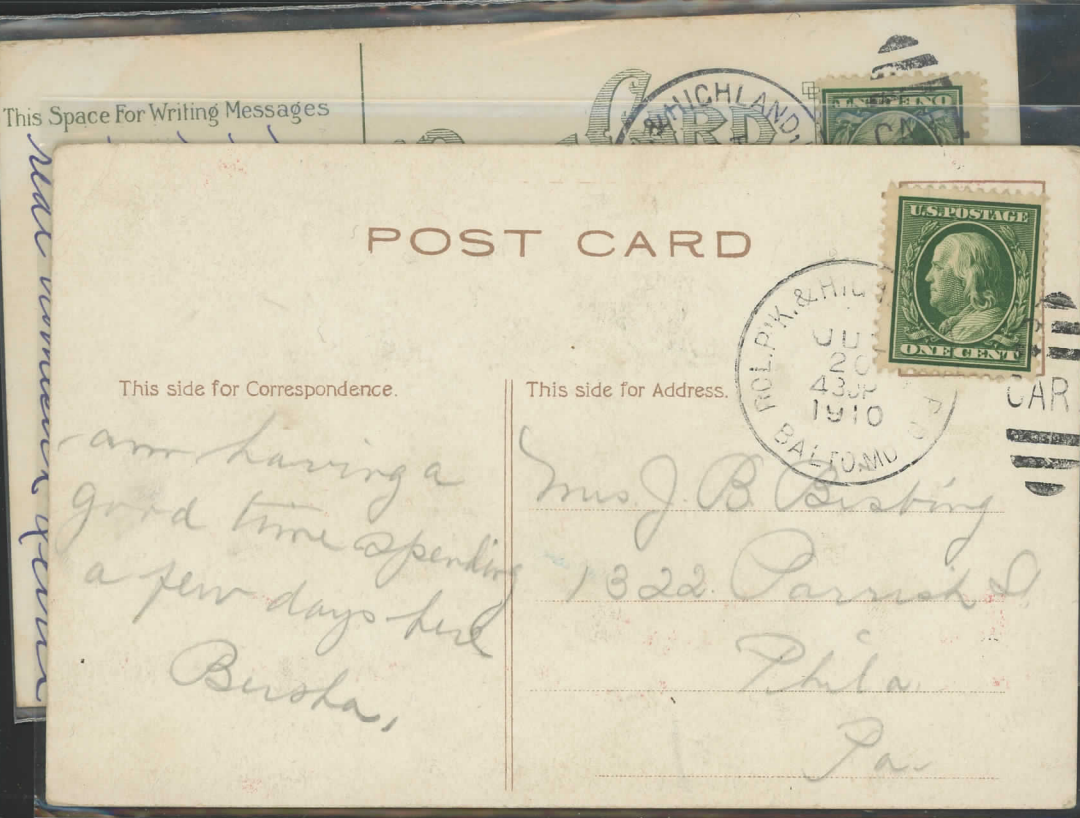 This Space For Writing Messages
CARD
& HIGHLAND,
POST CARD
U.S. POSTAGE
ONE CENT
ROL. P'K. & HIG
20
1910
BALTO. MD
CAR
This side for Correspondence.
This side for Address.
am having a
good time spending
a few days here
Mrs J. B. Bisbing
1322 Parrish St
Phila
Pa.